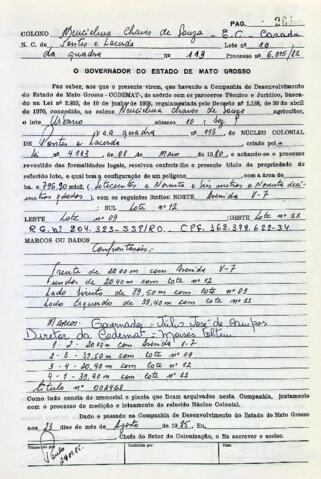 PAG. 26
COLONO Neucilma Chaves de Souza - E.C. Casada
N. C. de Pontes e Lacerda Lote nº 10
da quadra nº 113 Processo nº 6.015/82
O GOVERNADOR DO ESTADO DE MATO GROSSO
Faz saber, aos que o presente virem, que havendo a Companhia de Desenvolvimento
do Estado de Mato Grosso - CODEMAT, de acôrdo com os pareceres Técnico e Jurídico, baseado
na Lei nº 2.933, de 10 de junho de 1969, regulamentada pelo Decreto nº 1.138, de 30 de abril
de 1970, concedido ao colono Neucilma Chaves de Souza agricultor,
o lote Urbano número 10, Seq
da quadra nº 113, do NÚCLEO COLONIAL
de Pontes e Lacerda criado pela
Lei 4183, de 08 de Maio de 1980, e achando-se o processo
revestido das formalidades legais, resolveu conferir-lhe o presente título de propriedade do
referido lote, o qual tem a configuração de um polígono com a área de
ha 796,90 m2 (setecentos e Noventa e seis metros e Noventa deci
metros qdados), com os seguintes limites: NORTE Avenida V-7
: SUL Lote nº 12
LESTE Lote nº 09 :OESTE Lote nº 11
R.G. nº 204.323-SSP/RO. CPF. 162.398.622-34.
MARCOS OU DADOS
Confrontações:
Frente de 20.00m com Avenida V-7
Fundos de 20,40m com lote nº 12
Lado Direito de 39,50m com lote nº 09
Lado Esquerdo de 39,40m com lote nº 11
Marcos: Governador - Júlio José de Campos
Diretor da Codemat - Moises Feltrin
1-2 - 20.00m com Avenida V-7
2-3 - 39,50m com lote nº 09
3-4 - 20,40m com lote nº 12
4-1 - 39,40m com lote nº 11
título nº 008968
Como tudo consta do memorial e planta que ficam arquivados nesta Companhia, juntamente
com o processo de medição e loteamento do referido Núcleo Colonial.
Dado e passado na Companhia de Desenvolvimento do Estado de Mato Grosso
aos 23 dias do mês de Agosto de 1985 Eu,
, Chefe do Setor de Colonização, o fiz escrever e assino.
Transcrito por Conferido por Visto